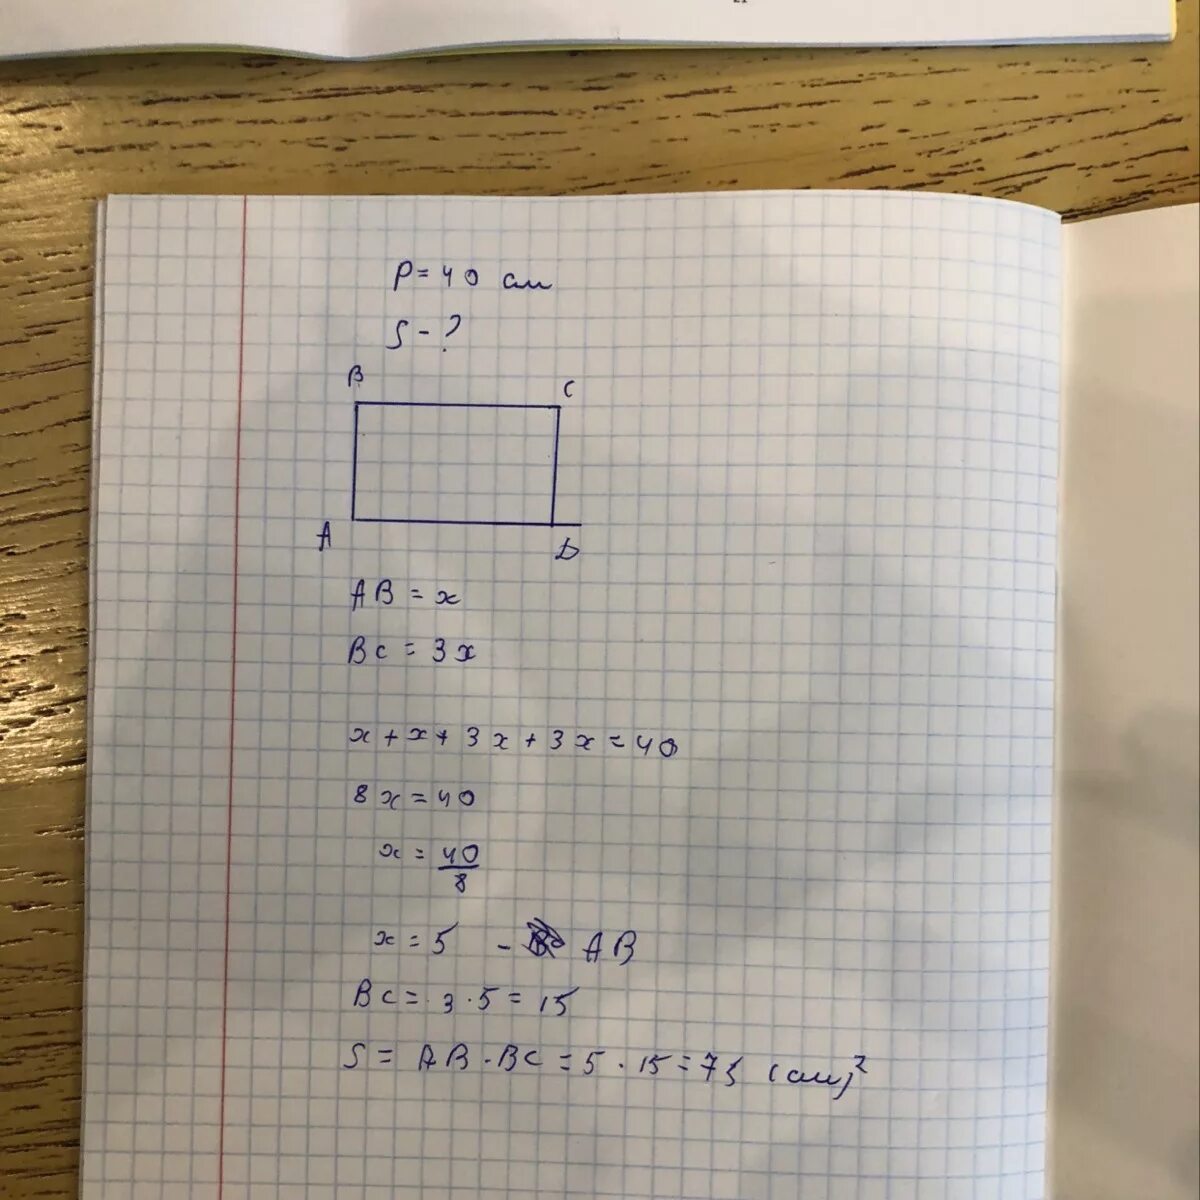 P = 40 см
S - ?
B C
A D
AB = x
BC = 3x
x + x + 3x + 3x = 40
8x = 40
x = 40/8
x = 5 - AB
BC = 3 · 5 = 15
S = AB · BC = 5 · 15 = 75 (см)²